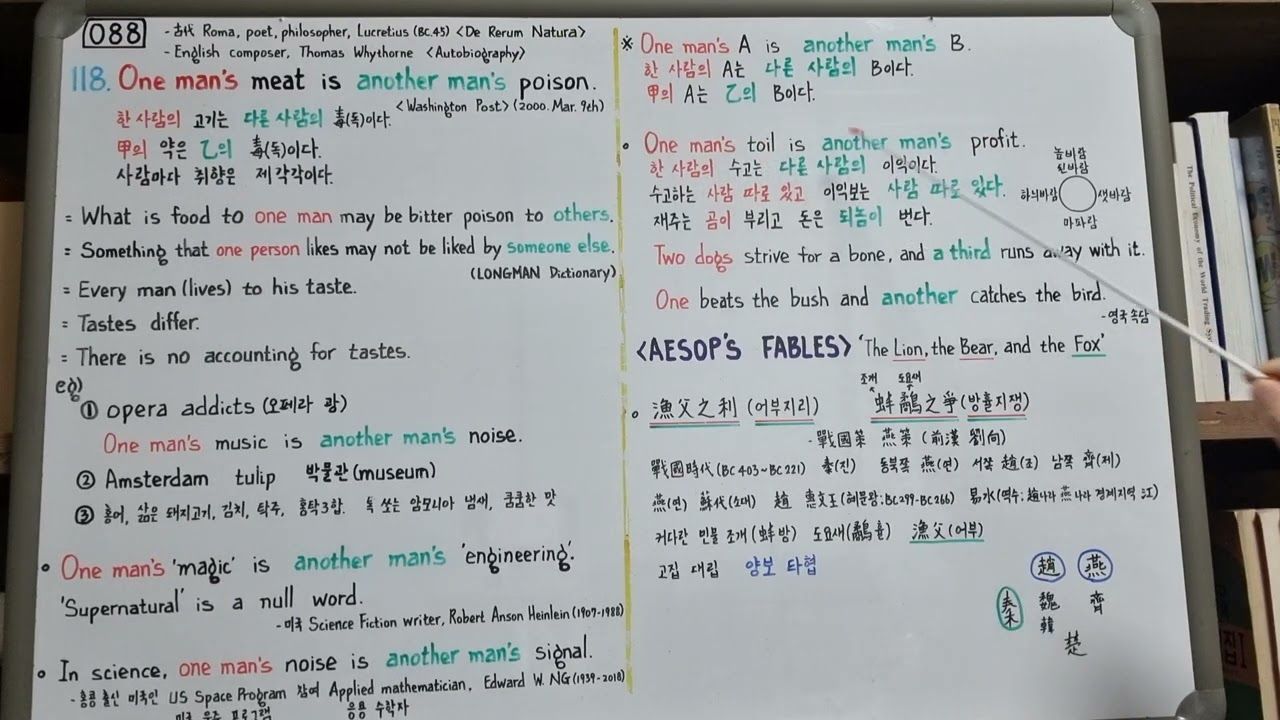 088
- 古代 Roma, poet, philosopher, Lucretius (BC.45) <De Rerum Natura>
- English composer, Thomas Whythorne <Autobiography>
118. One man's meat is another man's poison.
<Washington Post> (2000. Mar. 9th)
한 사람의 고기는 다른 사람의 毒(독)이다.
甲의 약은 乙의 毒(독)이다.
사람마다 취향은 제각각이다.
= What is food to one man may be bitter poison to others.
= Something that one person likes may not be liked by someone else.
(LONGMAN Dictionary)
= Every man (lives) to his taste.
= Tastes differ.
= There is no accounting for tastes.
eg)
① opera addicts (오페라 광)
One man's music is another man's noise.
② Amsterdam tulip 박물관(museum)
③ 홍어, 삶은 돼지고기, 김치, 탁주, 홍탁3합. 톡 쏘는 암모니아 냄새, 쿰쿰한 맛
∘ One man's 'magic' is another man's 'engineering'.
'Supernatural' is a null word.
- 미국 Science Fiction writer, Robert Anson Heinlein (1907-1988)
∘ In science, one man's noise is another man's signal.
- 홍콩 출신 미국인 US Space Program 참여 Applied mathematician, Edward W. NG (1939-2018)
미국 우주 프로그램 응용 수학자
※ One man's A is another man's B.
한 사람의 A는 다른 사람의 B이다.
甲의 A는 乙의 B이다.
∘ One man's toil is another man's profit.
한 사람의 수고는 다른 사람의 이익이다.
수고하는 사람 따로 있고 이익보는 사람 따로 있다.
재주는 곰이 부리고 돈은 되놈이 번다.
높바람
된바람
하늬바람 샛바람
마파람
Two dogs strive for a bone, and a third runs away with it.
One beats the bush and another catches the bird.
- 영국 속담
<AESOP'S FABLES> 'The Lion, the Bear, and the Fox'
조개 도요새
∘ 漁父之利 (어부지리) 蚌鷸之爭 (방휼지쟁)
- 戰國策 燕策 (前漢 劉向)
戰國時代 (BC 403~BC 221) 秦(진) 동북쪽 燕(연) 서쪽 趙(조) 남쪽 齊(제)
燕(연) 蘇代(소대) 趙 惠文王(혜문왕;BC299-BC266) 易水(역수; 趙나라 燕나라 경계지역 江)
커다란 민물 조개 (蚌 방) 도요새 (鷸 휼) 漁父 (어부)
고집 대립 양보 타협
趙 燕
秦 魏 齊
韓
楚
The Political Economy of the World Trading